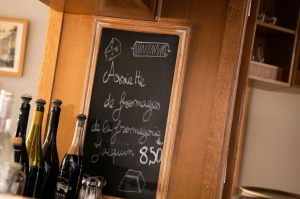 Assiette
de fromages
de la fromagerie
Jacquin 8,50